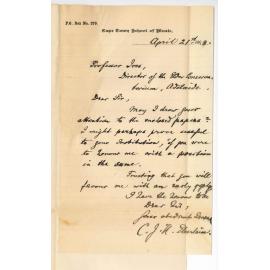 P.O. Box No. 379.
Cape Town School of Music,
April 21st
Professor Ives,
Director of the Elder Conserva-
torium, Adelaide.
Dear Sir,
May I draw your
attention to the enclosed papers?
I might perhaps prove useful
to your Institution, if you were
to honour me with a position
in the same.
Trusting that you will
favour me with an early reply
I have the honour to be
Dear Sir,
Your obedient Servant
C. J. H.